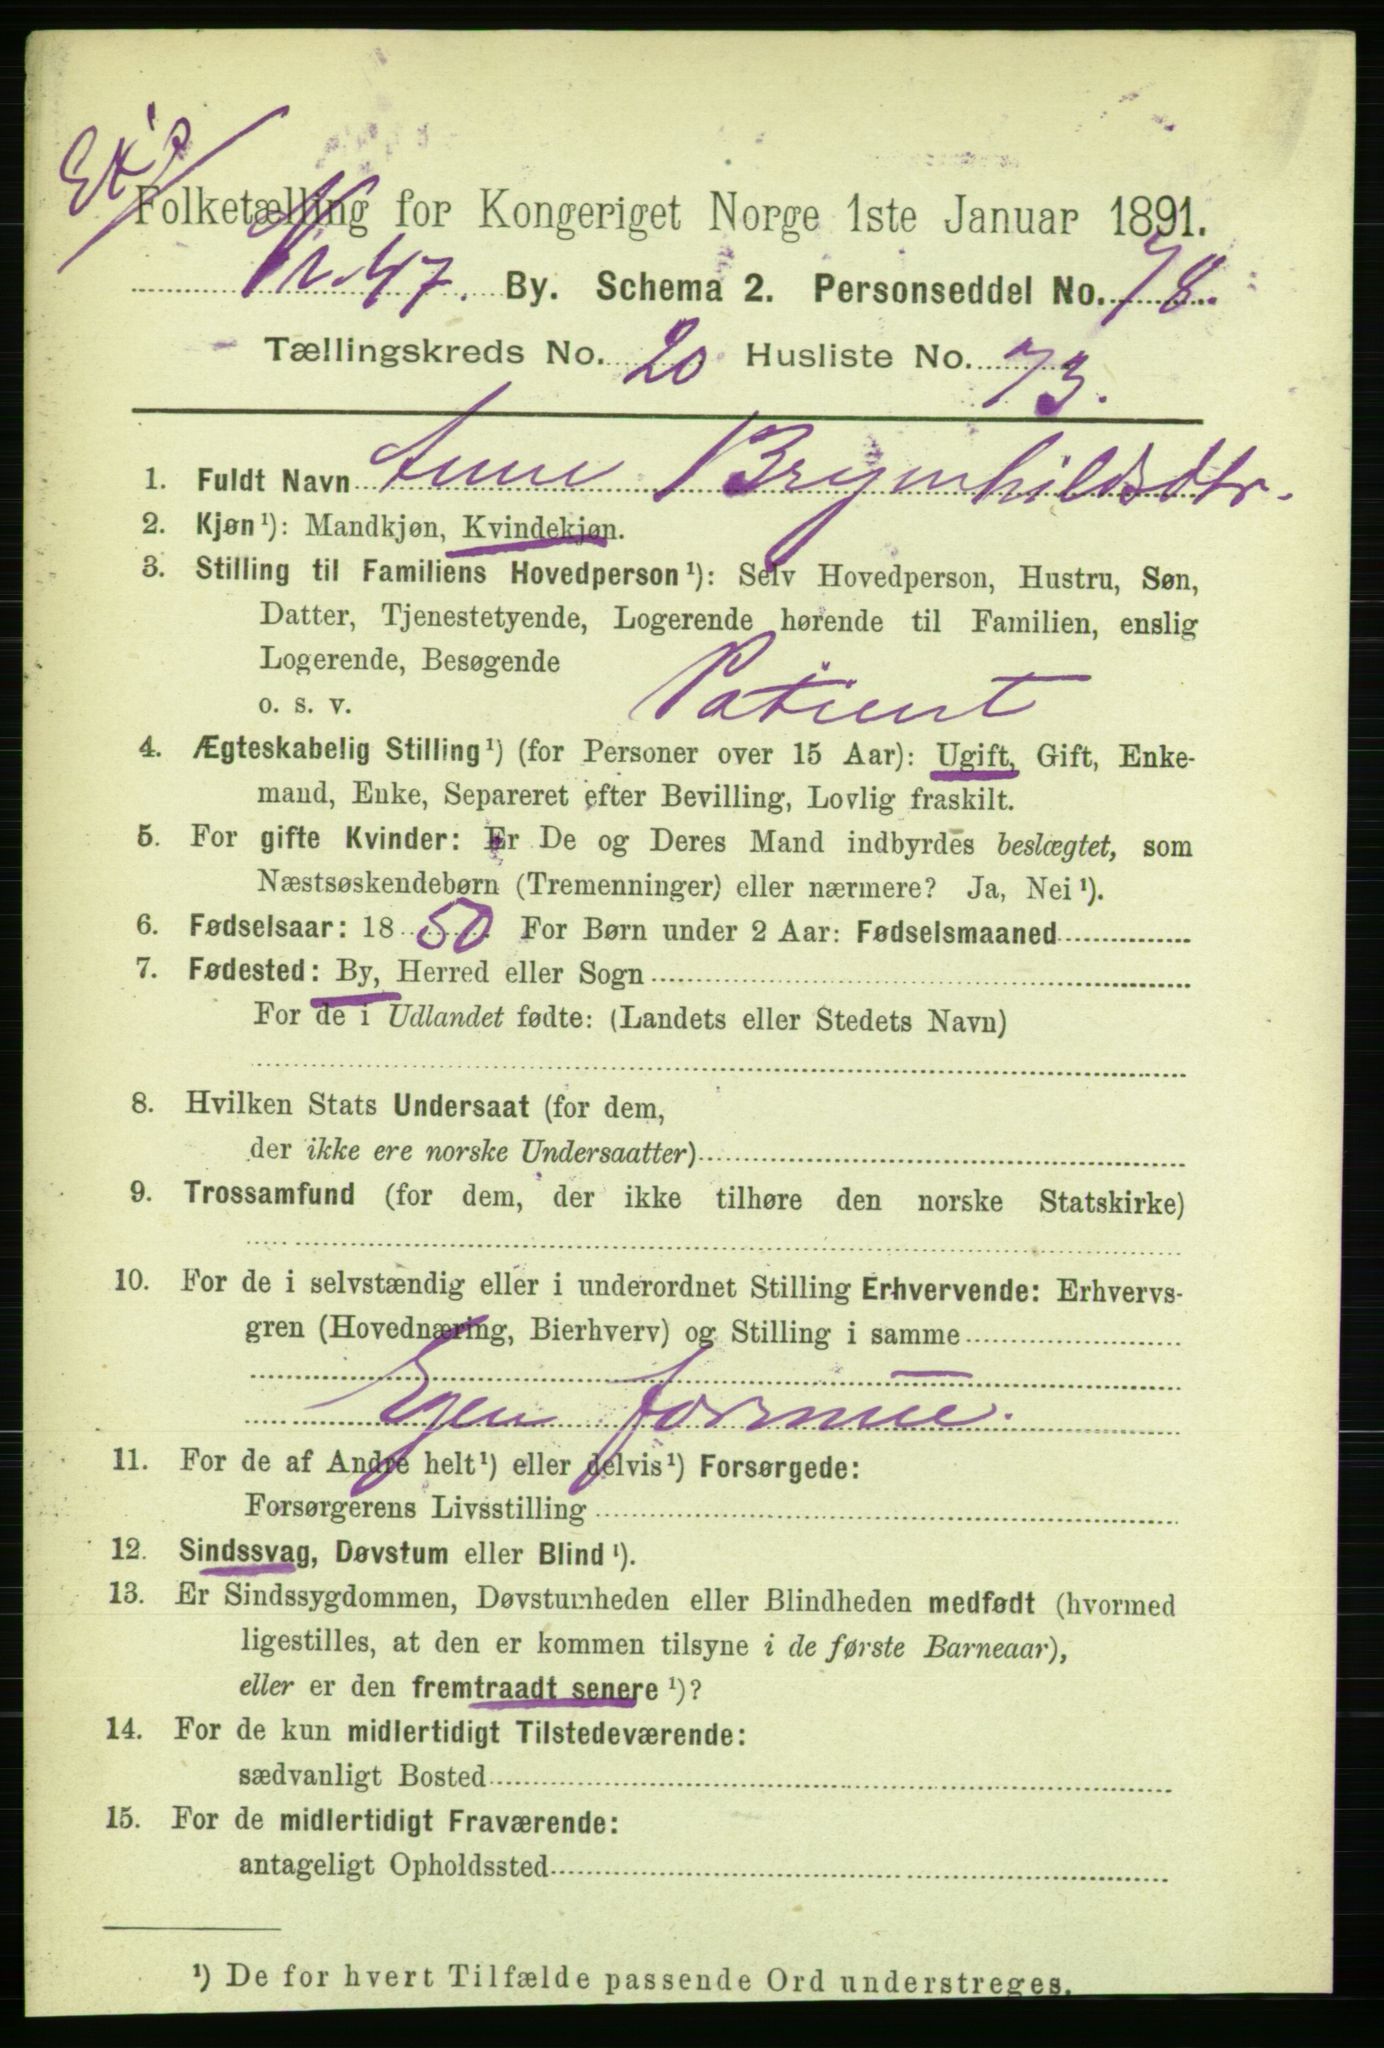 Folketælling for Kongeriget Norge 1ste Januar 1891.
Nr. 47. By. Schema 2. Personseddel No. 78.
Tællingskreds No. 20 Husliste No. 73.
1. Fuldt Navn Anne Brynhildsdtr.
2. Kjøn¹): Mandkjøn, Kvindekjøn.
3. Stilling til Familiens Hovedperson¹): Selv Hovedperson, Hustru, Søn,
Datter, Tjenestetyende, Logerende hørende til Familien, enslig
Logerende, Besøgende
o. s. v. Patient
4. Ægteskabelig Stilling¹) (for Personer over 15 Aar): Ugift, Gift, Enke-
mand, Enke, Separeret efter Bevilling, Lovlig fraskilt.
5. For gifte Kvinder: Er De og Deres Mand indbyrdes beslægtet, som
Næstsøskendebørn (Tremenninger) eller nærmere? Ja, Nei¹).
6. Fødselsaar: 1850. For Børn under 2 Aar: Fødselsmaaned
7. Fødested: By, Herred eller Sogn
For de i Udlandet fødte: (Landets eller Stedets Navn)
8. Hvilken Stats Undersaat (for dem,
der ikke ere norske Undersaatter)
9. Trossamfund (for dem, der ikke tilhøre den norske Statskirke)
10. For de i selvstændig eller i underordnet Stilling Erhvervende: Erhvervs-
gren (Hovednæring, Bierhverv) og Stilling i samme
Egen formue.
11. For de af Andre helt¹) eller delvis¹) Forsørgede:
Forsørgerens Livsstilling
12. Sindssvag, Døvstum eller Blind¹).
13. Er Sindssygdommen, Døvstumheden eller Blindheden medfødt (hvormed
ligestilles, at den er kommen tilsyne i de første Barneaar),
eller er den fremtraadt senere¹)?
14. For de kun midlertidigt Tilstedeværende:
sædvanligt Bosted
15. For de midlertidigt Fraværende:
antageligt Opholdssted
¹) De for hvert Tilfælde passende Ord understreges.